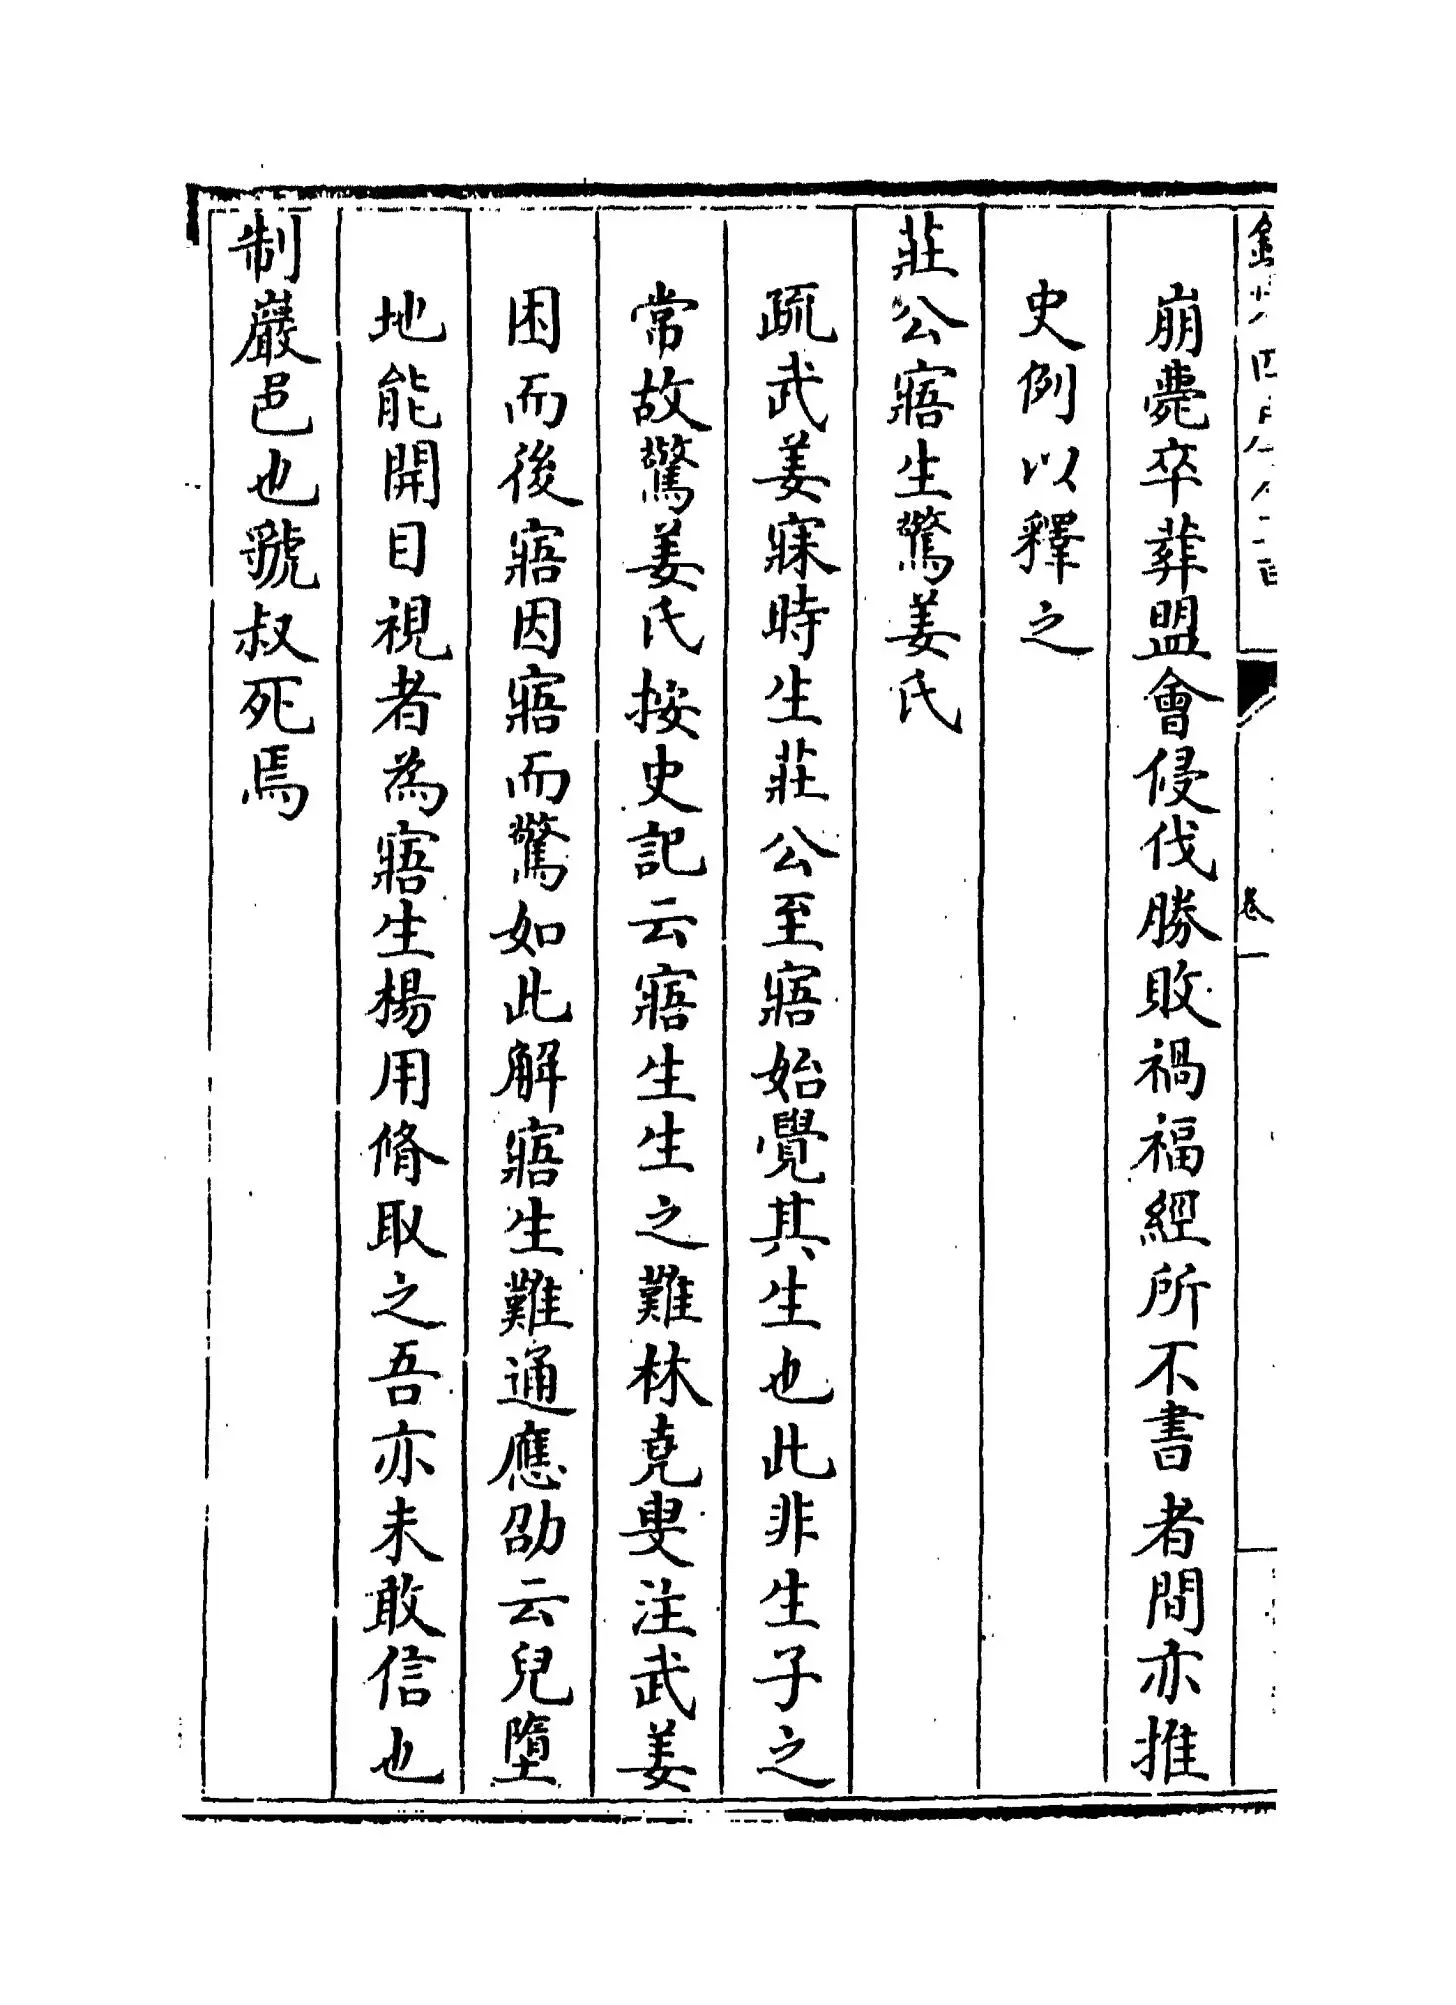 崩薨卒葬盟會侵伐勝敗禍福經所不書者間亦推
史例以釋之
莊公寤生驚姜氏
疏武姜寐時生莊公至寤始覺其生也此非生子之
常故驚姜氏按史記云寤生生之難林堯叟注武姜
困而後寤因寤而驚如此解寤生難通應劭云兒墮
地能開目視者為寤生楊用脩取之吾亦未敢信也
制巖邑也虢叔死焉
卷一